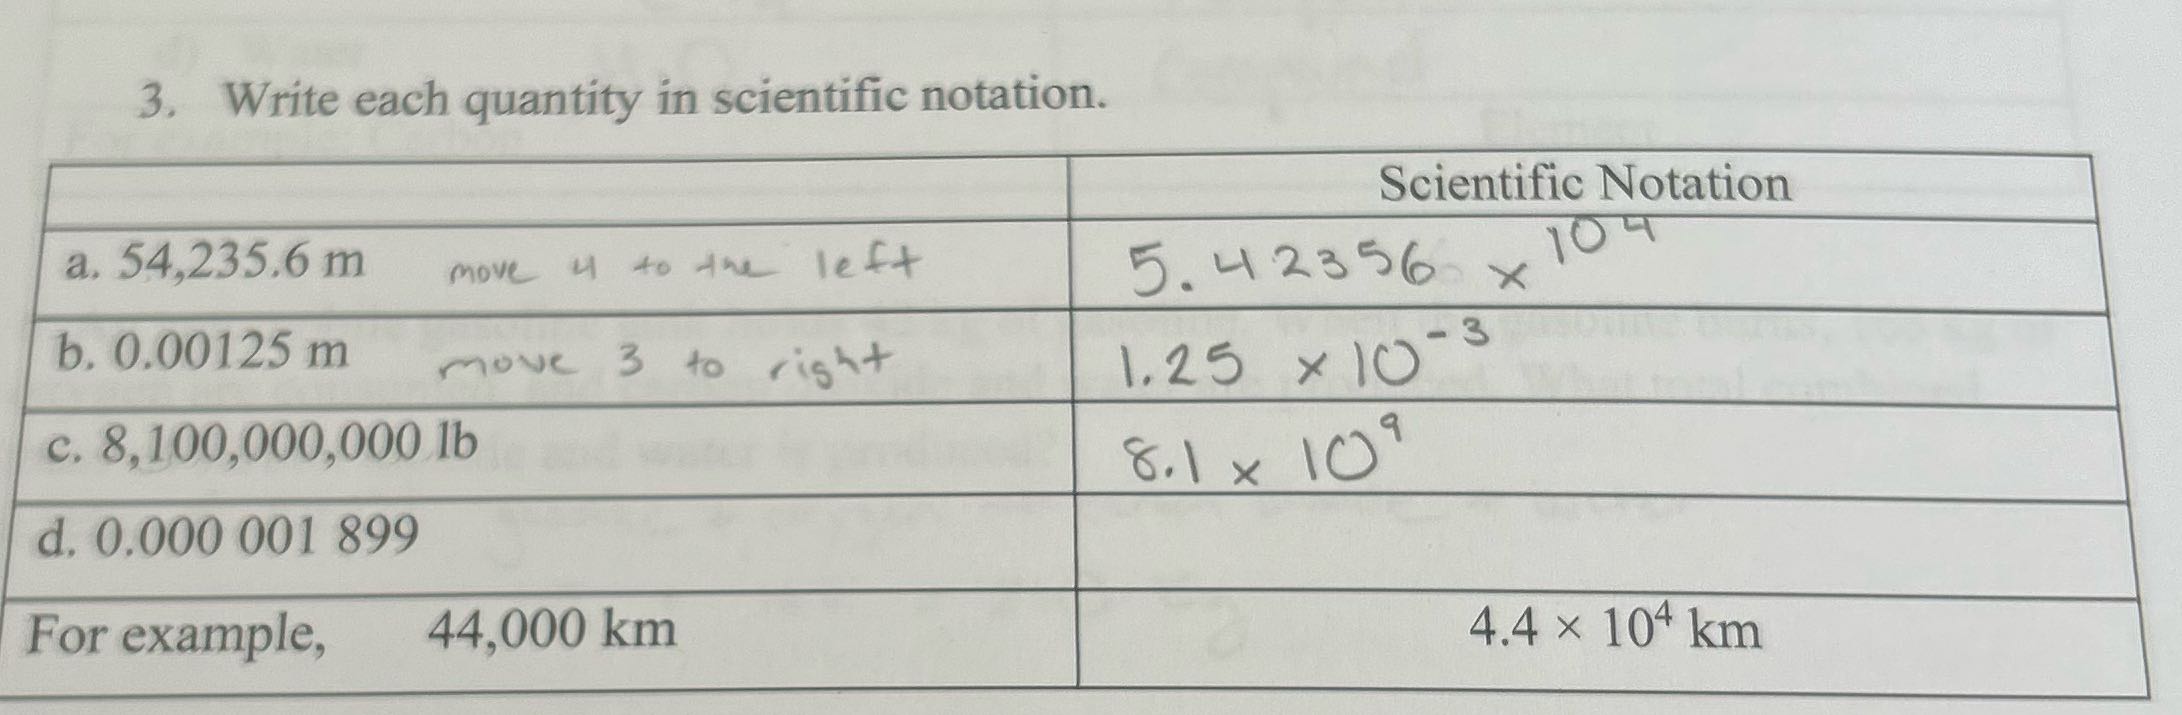 3. Write each quantity in scientific notation.
Scientific Notation
a. 54,235.6 m move 4 to the left 5.42356 × 10⁴
b. 0.00125 m move 3 to right 1.25 × 10⁻³
c. 8,100,000,000 lb 8.1 × 10⁹
d. 0.000 001 899
For example, 44,000 km 4.4 × 10⁴ km